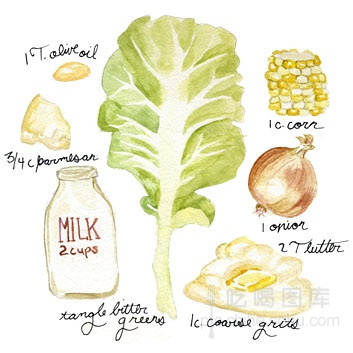 1 T. olive oil
3/4 c parmesan
MILK
2 cups
tangle bitter
greens
1 c. corn
1 onion
2 T butter
1c coarse grits
吃喝图库